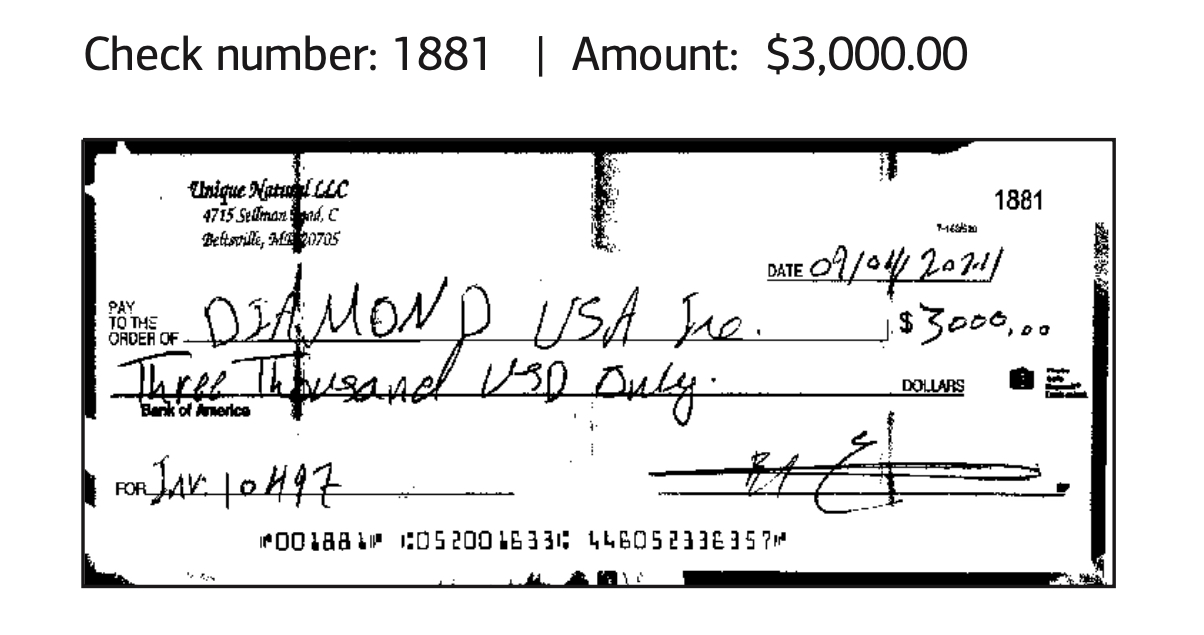 Check number: 1881 | Amount: $3,000.00
Unique Natural LLC
4715 Sellman Road, C
Beltsville, MD 20705
1881
DATE 09/04/2021
PAY
TO THE
ORDER OF DIAMOND USA Inc. $ 3000.00
Three Thousand USD Only. DOLLARS
Bank of America
FOR Inv. 10497
⑈001881⑈ ⑆052001633⑆ 446052336357⑈